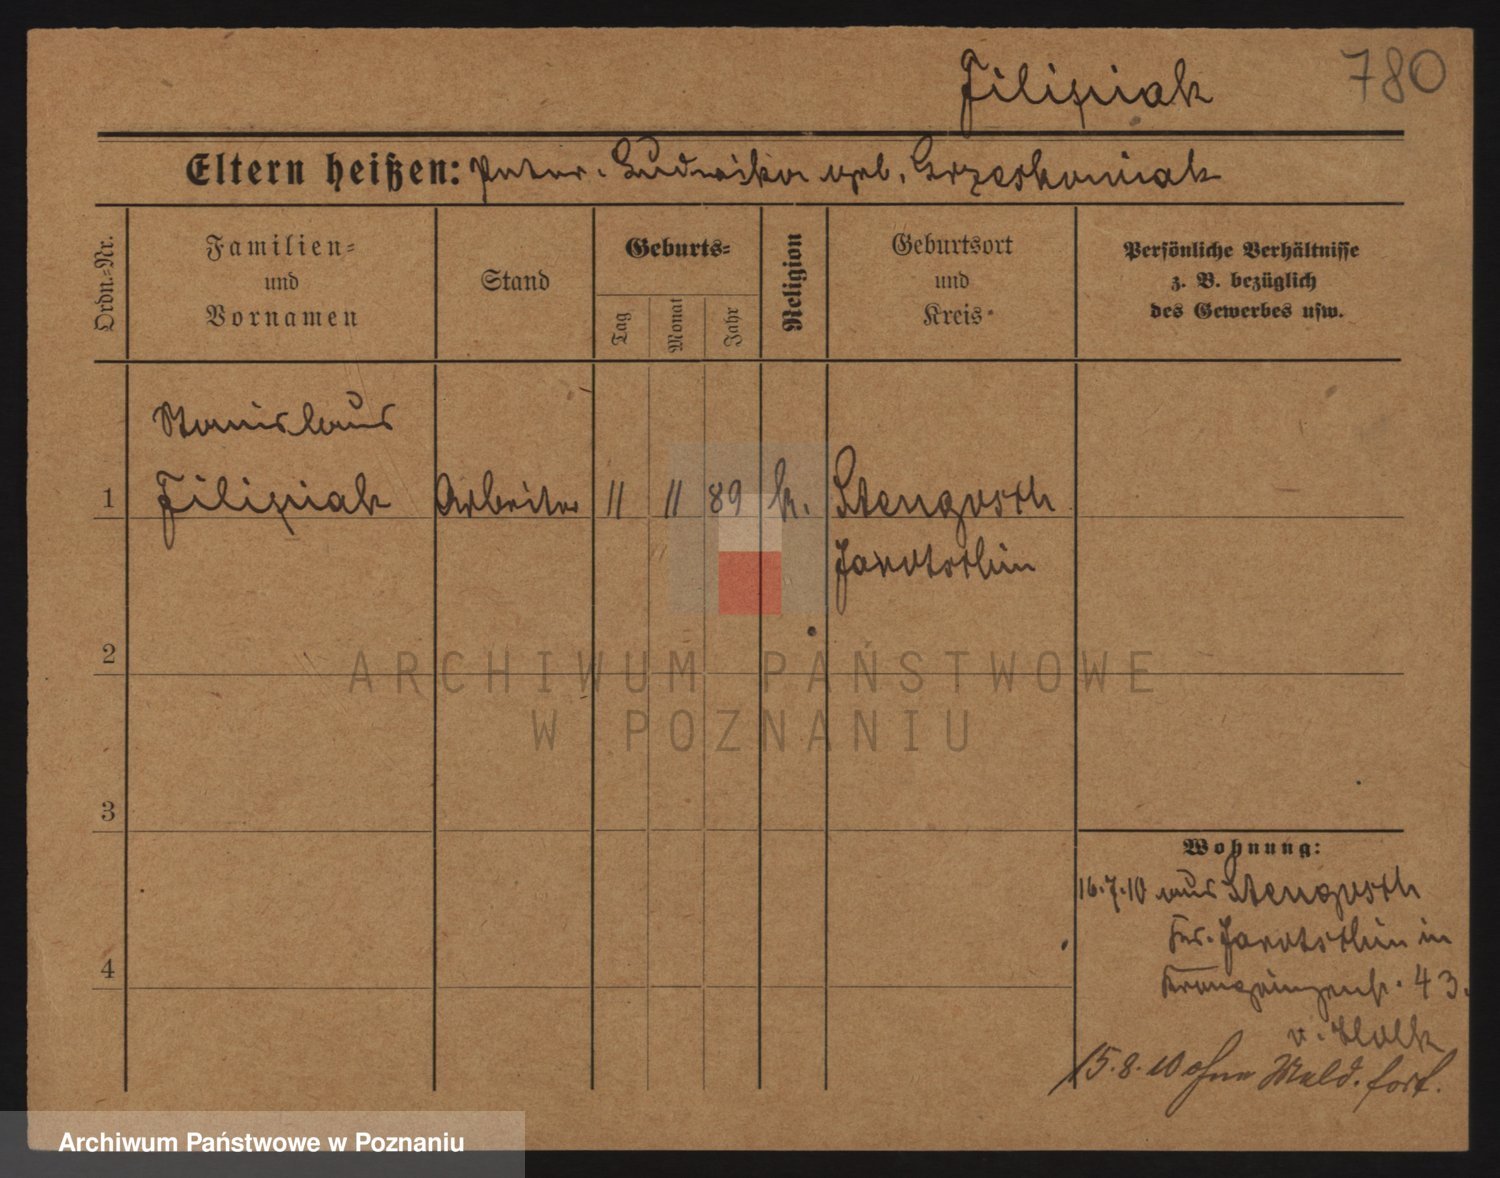 Filipiak 780
Eltern heißen: Peter. Ludwika geb. Grzeskowiak
Ordn.-Nr.
Familien-
und
Vornamen
Stand
Geburts-
Tag
Monat
Jahr
Religion
Geburtsort
und
Kreis
Persönliche Verhältnisse
z. B. bezüglich
des Gewerbes usw.
Stanislaus
1 Filipiak Arbeiter 11 11 89 k. Stengosch
Jarotschin
2
ARCHIWUM PAŃSTWOWE
W POZNANIU
3
Wohnung:
16.7.10 aus Stengosch
Krs. Jarotschin in
43.
v.
4
15.8.10 ohne Meld. fort.
Archiwum Państwowe w Poznaniu